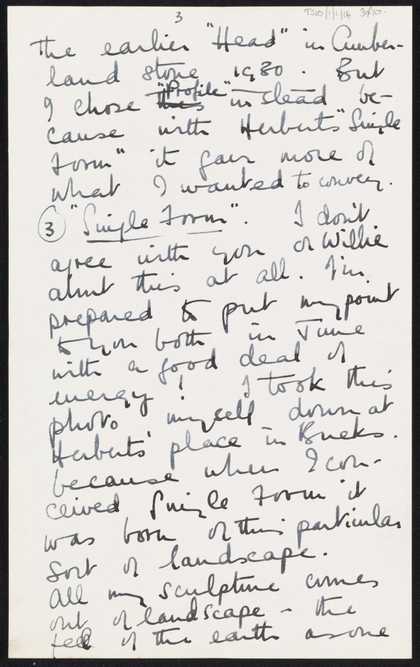 3
TSWO/1/1/14 3of10.
the earlier "Head" in Cumber-
land stone 1930. But
I chose this "Profile" instead be-
cause with Herberts "Single
Form" it gave more of
what I wanted to convey.
3 "Single Form". I don't
agree with you or Willie
about this at all. I'm
prepared to put my point
to you both in June
with a good deal of
energy! I took this
photo myself down at
Herberts' place in Bucks.
because when I con-
ceived Single Form it
was born of this particular
sort of landscape.
All my sculpture comes
out of landscape - the
feel of the earth as one